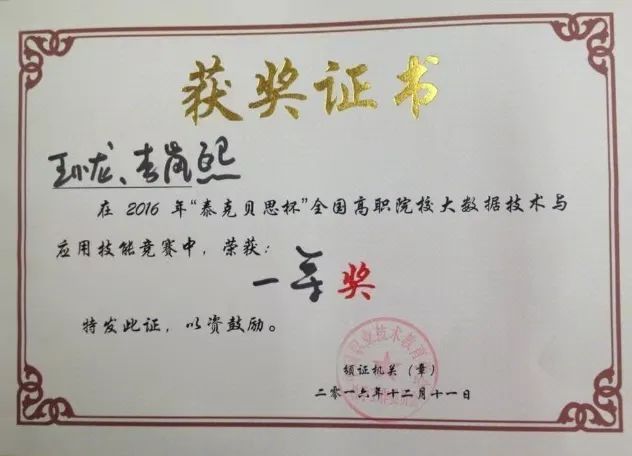 获奖证书
王小龙、李岚熙
在 2016 年“泰克贝思杯”全国高职院校大数据技术与
应用技能竞赛中，荣获：
一等奖
特发此证，以资鼓励。
职业技术教育
颁证机关（章）
二零一六年十二月十一日